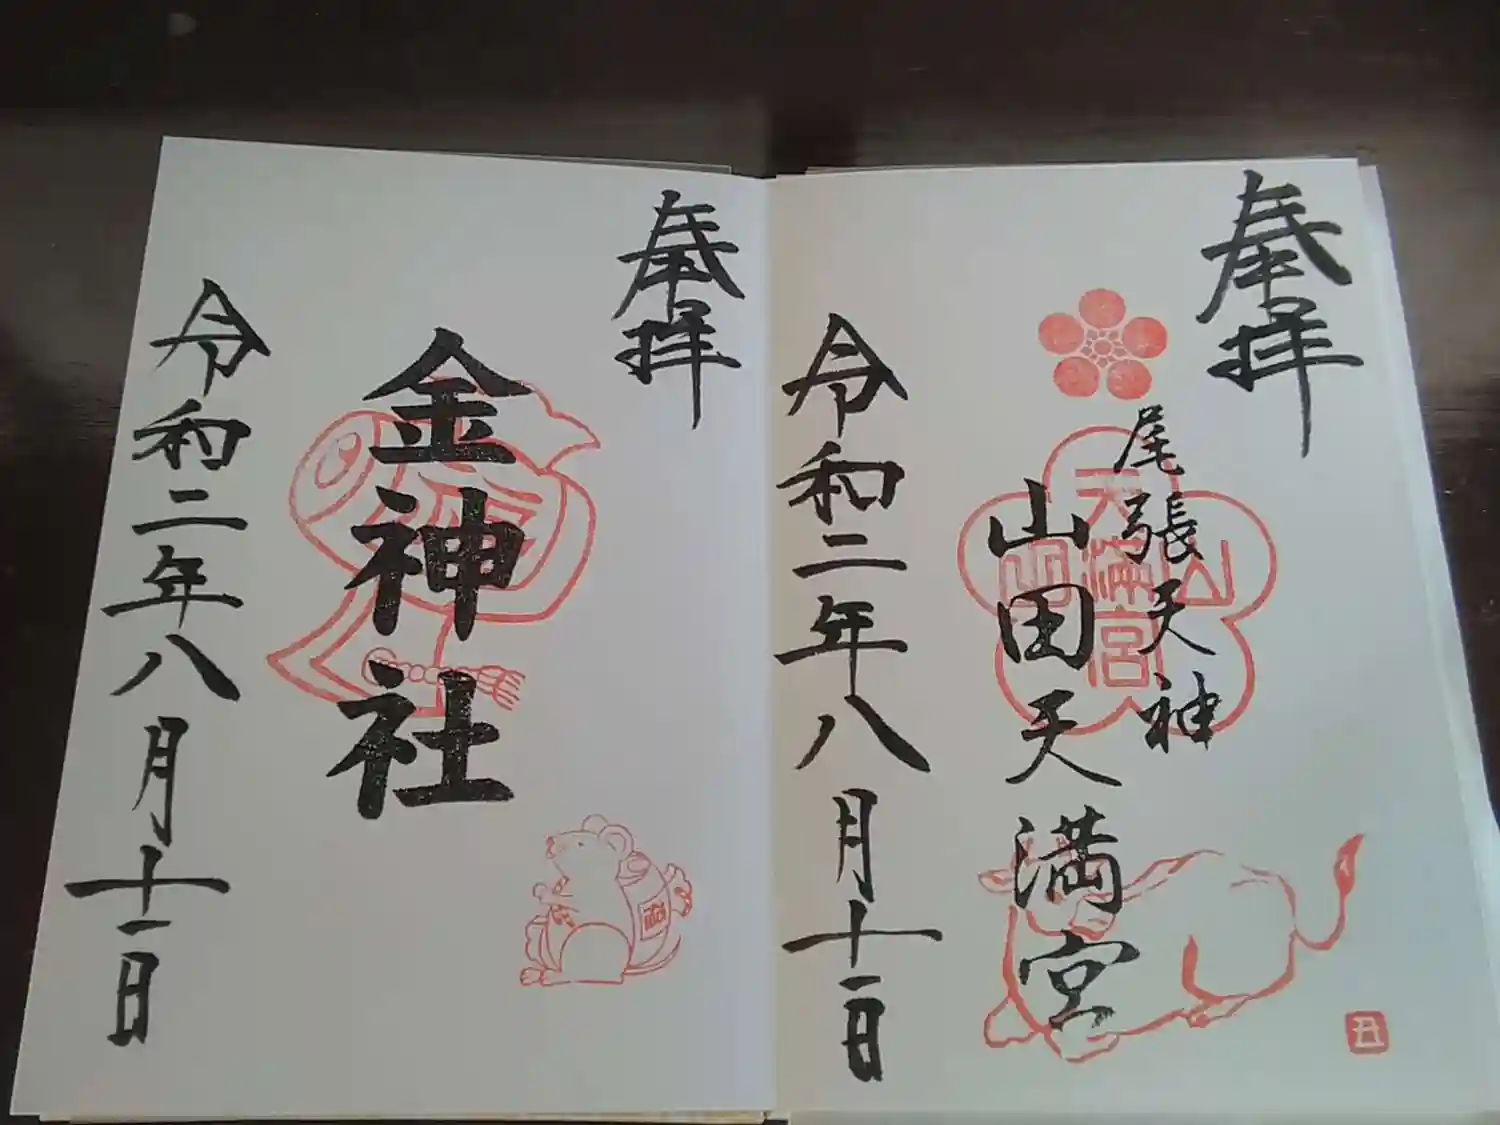 奉拝
尾張天神
山田天満宮
天満宮
山
田
令和二年八月十一日
丑
奉拝
金神社
令和二年八月十一日
福